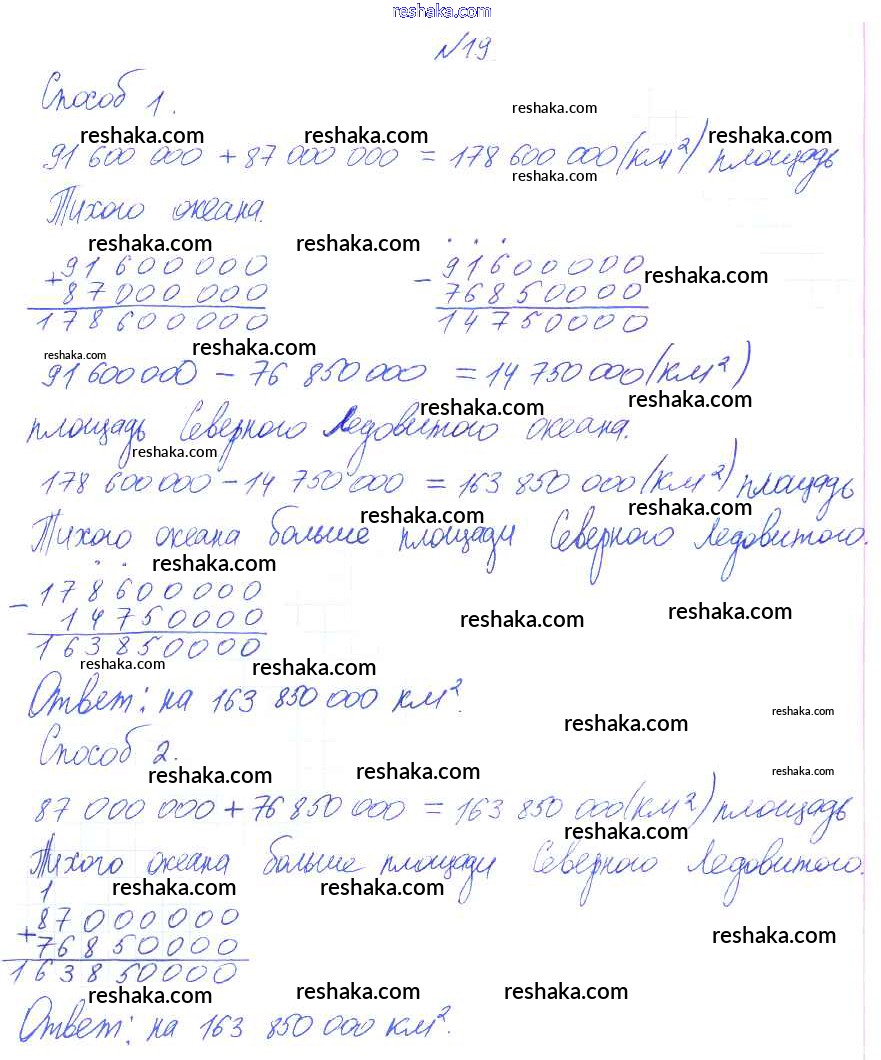 reshaka.com
№19
Способ 1.
reshaka.com
reshaka.com reshaka.com reshaka.com
91 600 000 + 87 000 000 = 178 600 000 (км²) площадь
reshaka.com
Тихого океана.
reshaka.com reshaka.com
+91600000 −91600000
reshaka.com
87000000 76850000
178600000 14750000
reshaka.com reshaka.com
91 600 000 − 76 850 000 = 14 750 000 (км²)
reshaka.com reshaka.com
площадь Северного Ледовитого океана.
reshaka.com
178 600 000 − 14 750 000 = 163 850 000 (км²) площадь
reshaka.com reshaka.com
Тихого океана больше площади Северного Ледовитого.
reshaka.com
−178600000
14750000
reshaka.com reshaka.com
163850000
reshaka.com reshaka.com
Ответ: на 163 850 000 км².
reshaka.com reshaka.com
Способ 2.
reshaka.com reshaka.com reshaka.com
87 000 000 + 76 850 000 = 163 850 000 (км²) площадь
reshaka.com
Тихого океана больше площади Северного Ледовитого.
1
reshaka.com reshaka.com
+87000000
reshaka.com
76850000
163850000
reshaka.com reshaka.com reshaka.com
Ответ: на 163 850 000 км².